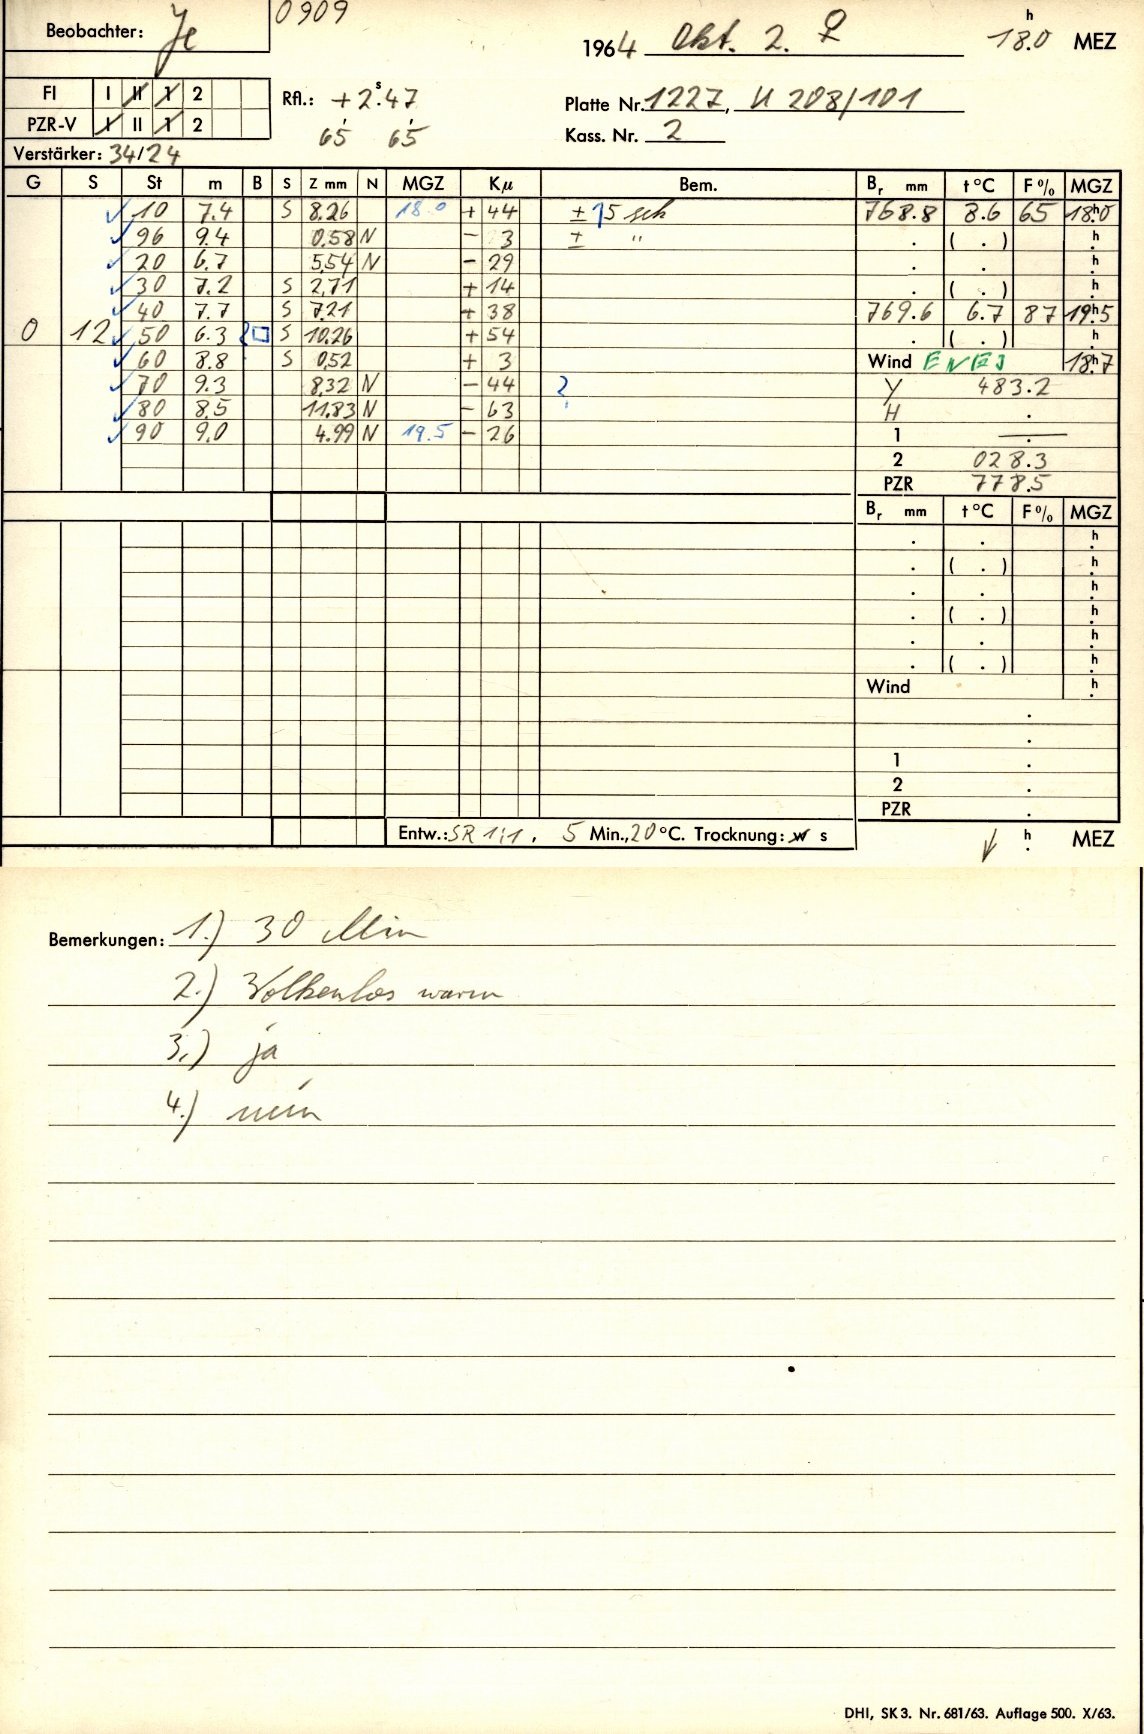 Beobachter: Je 0909
1964 Okt. 2. ♀ 18.0 h MEZ
FI I II 1 2
PZR-V I II 1 2
Rfl.: +2.47 s
65 65
Platte Nr. 1227, U 208/101
Kass. Nr. 2
Verstärker: 34/24
G S St m B S Z mm N MGZ Kμ Bem. Br mm t °C F % MGZ
✓ 10 7.4 S 8.26 18.0 + 44 ± 15 sek 768.8 8.6 65 18h0
✓ 96 9.4 0.58 N - 3 ± " . ( . ) h
✓ 20 6.7 5.54 N - 29 . . h
✓ 30 7.2 S 2.71 + 14 . ( . ) h
✓ 40 7.7 S 7.21 + 38 769.6 6.7 87 19h5
0 12 ✓ 50 6.3 { □ S 10.26 + 54 . ( . ) h
✓ 60 8.8 S 0.52 + 3 Wind 18h7
✓ 70 9.3 8.32 N - 44 ? Y 483.2
✓ 80 8.5 11.83 N - 63 H .
✓ 90 9.0 4.99 N 19.5 - 26 1 —
2 028.3
PZR 778.5
Br mm t °C F % MGZ
. . h
. ( . ) h
. . h
. ( . ) h
. . h
. ( . ) h
Wind h
.
.
1 .
2 .
PZR .
Entw.: SR 1:1, 5 Min., 20 °C. Trocknung: w s h MEZ
Bemerkungen: 1.) 30 Min
2.) Wolkenlos warm
3.) ja
4.) nein
DHI, SK 3. Nr. 681/63. Auflage 500. X/63.